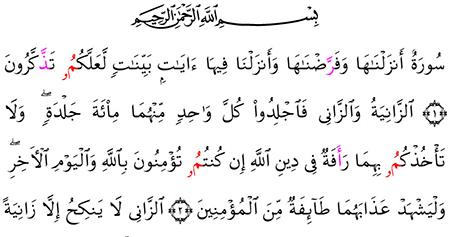 بِسْمِ ٱللَّهِ ٱلرَّحْمَٰنِ ٱلرَّحِيمِ
سُورَةٌ أَنزَلْنَٰهَا وَفَرَّضْنَٰهَا وَأَنزَلْنَا فِيهَا ءَايَٰتِۭ بَيِّنَٰتٖ لَّعَلَّكُمُۥ تَذَّكَّرُونَ
۝١ ٱلزَّانِيَةُ وَٱلزَّانِى فَٱجْلِدُوا۟ كُلَّ وَٰحِدٖ مِّنْهُمَا مِا۟ئَةَ جَلْدَةٖۖ وَلَا
تَأْخُذْكُمُۥ بِهِمَا رَأَفَةٌ فِى دِينِ ٱللَّهِ إِن كُنتُمُۥ تُؤْمِنُونَ بِٱللَّهِ وَٱلْيَوْمِ ٱلْأٓخِرِۖ
وَلْيَشْهَدْ عَذَابَهُمَا طَآئِفَةٌ مِّنَ ٱلْمُؤْمِنِينَ ۝٢ ٱلزَّانِى لَا يَنكِحُ إِلَّا زَانِيَةً